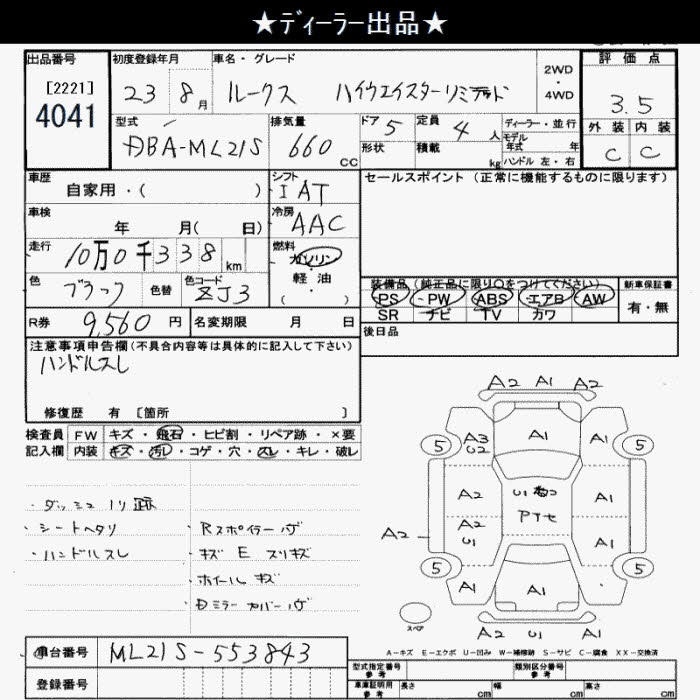 ★ディーラー出品★
出品番号 初度登録年月 車名・グレード 2WD・4WD 評価点
[2221] 4041 23 8月 ルークス ハイウエイスターリミテッド 3.5
型式 排気量 ドア 5 定員 4人 ディーラー・並行 外装 内装
DBA-ML21S 660cc 形状 積載 kg モデル年式 年 C C
ハンドル 左・右
車歴 自家用・( ) シフト IAT セールスポイント (正常に機能するものに限ります)
車検 年 月( 日) 冷房 AAC
走行 10万0千338km 燃料 ガソリン・軽油・( )
色 ブラック 色替 色コード ZJ3 装備品(純正品に限り○をつけてください) 新車保証書
PS・PW・ABS・エアB・AW 有・無
SR ナビ TV カワ
R券 9,560円 名変期限 月 日 後日品
注意事項申告欄(不具合内容等は具体的に記入して下さい)
ハンドルスレ
修復歴 有 [箇所 ]
検査員 FW キズ・飛石・ヒビ割・リペア跡・×要
記入欄 内装 キズ・汚レ・コゲ・穴・スレ・キレ・破レ
・ダッシュ ノリ跡
・シートヘタリ ・Rスポイラーハゲ
・ハンドルスレ ・キズ E スリキズ
・ホイールキズ
・Dミラーカバーハゲ
A2 A1 A2
5 A3 U2 A1 A1 5
A2 U1 A1
A2 A2 U1 PTセ A1
5 A1 A1 5
スペア A2 U1 A1
A-キズ E-エクボ U-凹み W-補修跡 S-サビ C-腐食 XX-交換済
車台番号 ML21S-553843 型式指定番号 参考 類別区分番号 参考
登録番号 車庫証明用 参考 長さ cm 幅 cm 高さ cm